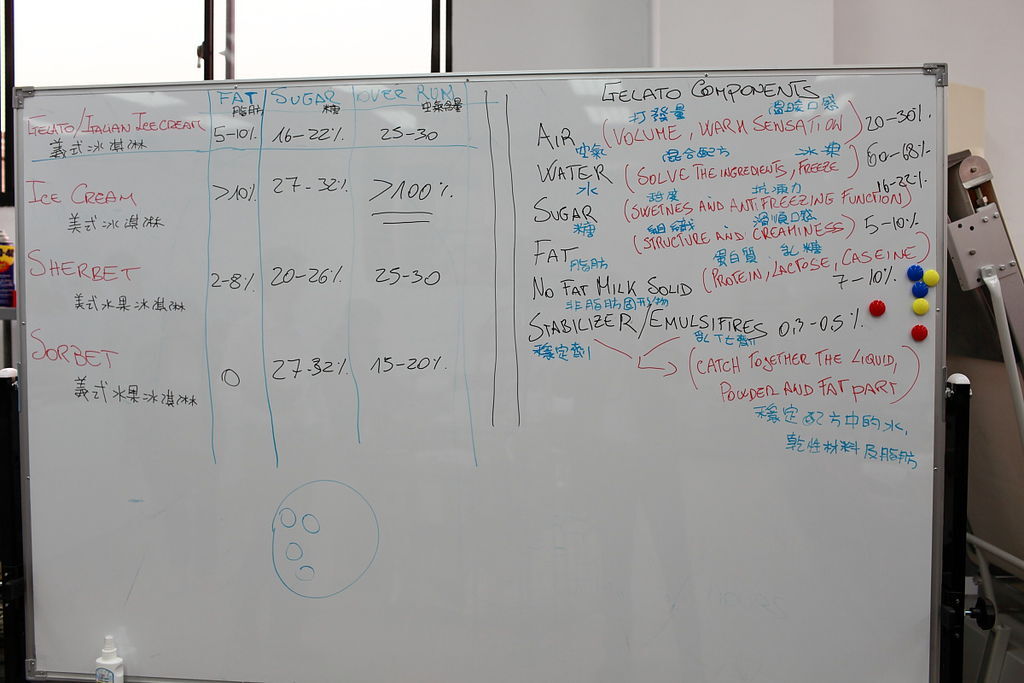 FAT SUGAR OVER RUM
脂肪 糖 空氣含量
GELATO/ITALIAN ICE CREAM 5-10% 16-22% 25-30
義式冰淇淋
ICE CREAM >10% 27-32% >100%
美式冰淇淋
SHERBET 2-8% 20-26% 25-30
美式水果冰淇淋
SORBET 0 27-32% 15-20%
義式水果冰淇淋
GELATO COMPONENTS
打發量 溫暖口感
AIR (VOLUME, WARM SENSATION) 20-30%
空氣 混合配方 冰架
WATER (SOLVE THE INGREDIENTS, FREEZE) 60-68%
水 甜度 抗凍力
SUGAR (SWETNES AND ANTIFREEZING FUNCTION) 16-22%
糖 組織 滑順口感
FAT (STRUCTURE AND CREAMINESS) 5-10%
脂肪 蛋白質 乳糖
NO FAT MILK SOLID (PROTEIN, LACTOSE, CASEINE) 7-10%
非脂肪固形物
STABILIZER/EMULSIFIRES 0,3-0,5%
穩定劑 乳化劑
(CATCH TOGETHER THE LIQUID,
POWDER AND FAT PART)
穩定配方中的水,
乾性材料及脂肪